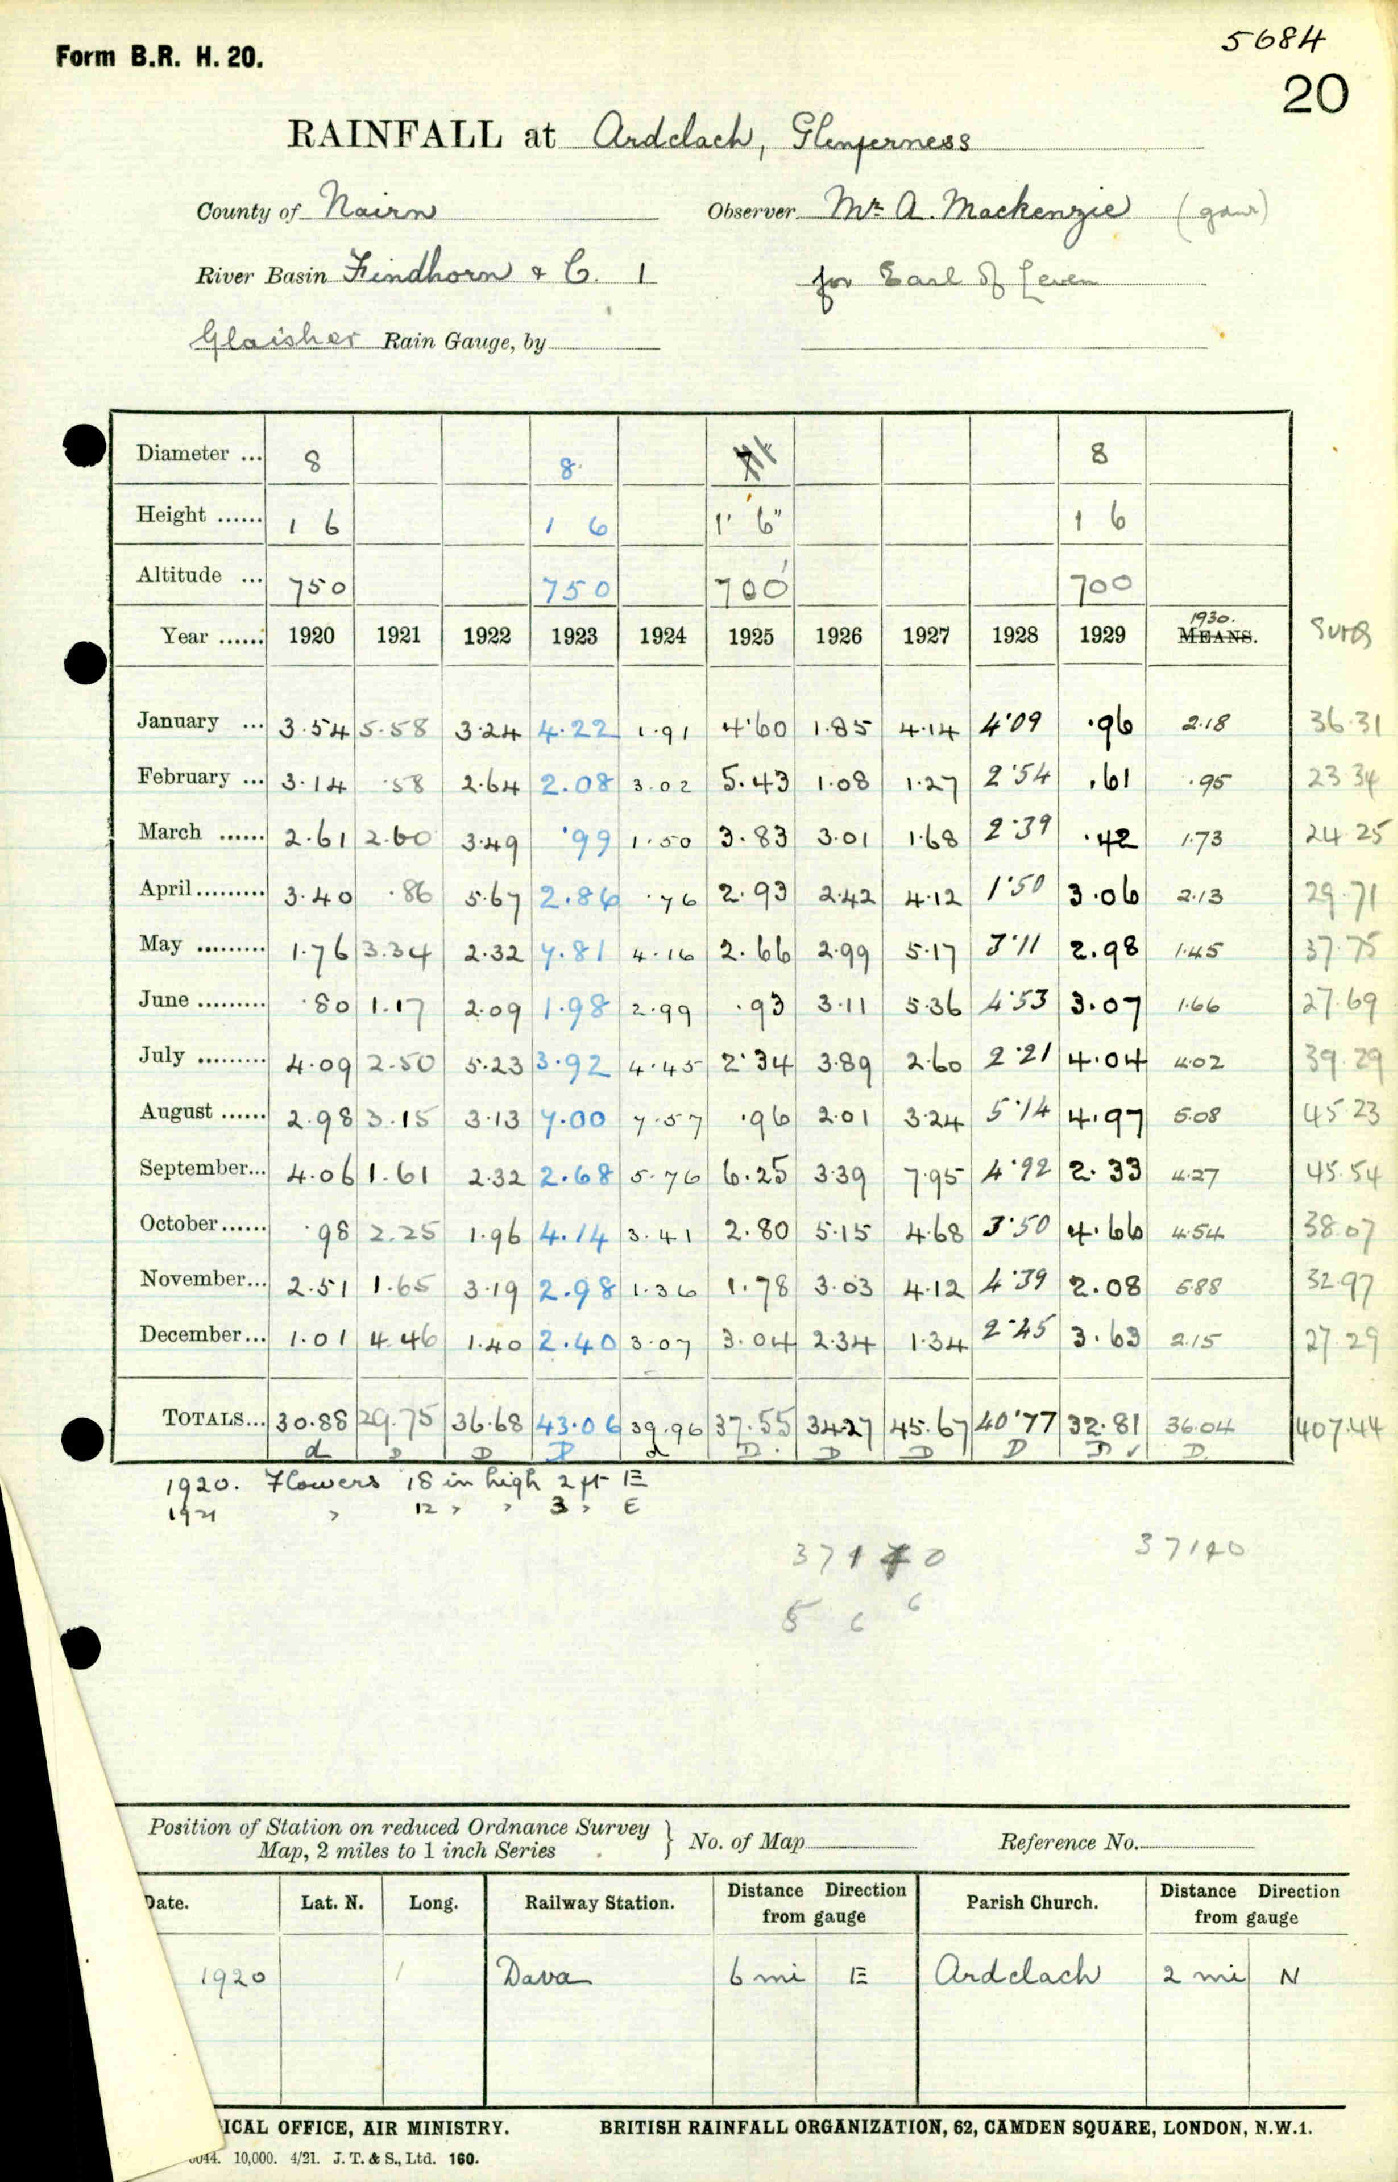 5684
Form B.R. H. 20.
20
RAINFALL at Ardclach, Glenferness
County of Nairn Observer Mr A. Mackenzie
River Basin Findhorn & C. 1 for Earl of Leven
Glaisher Rain Gauge, by
Diameter ... 8 8 8
Height ...... 1 6 1 6 1' 6" 1 6
Altitude ... 750 750 700' 700
1930.
Year ...... 1920 1921 1922 1923 1924 1925 1926 1927 1928 1929 MEANS.
January ... 3.54 5.58 3.24 4.22 1.91 4.60 1.85 4.14 4.09 .96 2.18 36.31
February ... 3.14 .58 2.64 2.08 3.02 5.43 1.08 1.27 2.54 .61 .95 23.34
March ...... 2.61 2.60 3.49 .99 1.50 3.83 3.01 1.68 2.39 .42 1.73 24.25
April ......... 3.40 .86 5.67 2.86 .76 2.93 2.42 4.12 1.50 3.06 2.13 29.71
May ......... 1.76 3.34 2.32 7.81 4.16 2.66 2.99 5.17 3.11 2.98 1.45 37.75
June ......... .80 1.17 2.09 1.98 2.99 .93 3.11 5.36 4.53 3.07 1.66 27.69
July ......... 4.09 2.50 5.23 3.92 4.45 2.34 3.89 2.60 2.21 4.04 4.02 39.29
August ...... 2.98 3.15 3.13 7.00 7.57 .96 2.01 3.24 5.14 4.97 5.08 45.23
September... 4.06 1.61 2.32 2.68 5.76 6.25 3.39 7.95 4.92 2.33 4.27 45.54
October...... .98 2.25 1.96 4.14 3.41 2.80 5.15 4.68 3.50 4.66 4.54 38.07
November... 2.51 1.65 3.19 2.98 1.36 1.78 3.03 4.12 4.39 2.08 5.88 32.97
December... 1.01 4.46 1.40 2.40 3.07 3.04 2.34 1.34 2.45 3.63 2.15 27.29
TOTALS... 30.88 29.75 36.68 43.06 39.96 37.55 34.27 45.67 40.77 32.81 36.04 407.44
d D D D d D D D D D ✓ D
1920. Flowers 18 in high 2 ft E
1921 " 12 " " 3 " E
37140
5 6 6
Position of Station on reduced Ordnance Survey
Map, 2 miles to 1 inch Series } No. of Map Reference No.
Date. Lat. N. Long. Railway Station. Distance Direction from gauge Parish Church. Distance Direction from gauge
1920 Dava 6 mi E Ardclach 2 mi N
ICAL OFFICE, AIR MINISTRY. BRITISH RAINFALL ORGANIZATION, 62, CAMDEN SQUARE, LONDON, N.W.1.
10,000. 4/21. J. T. & S., Ltd. 160.